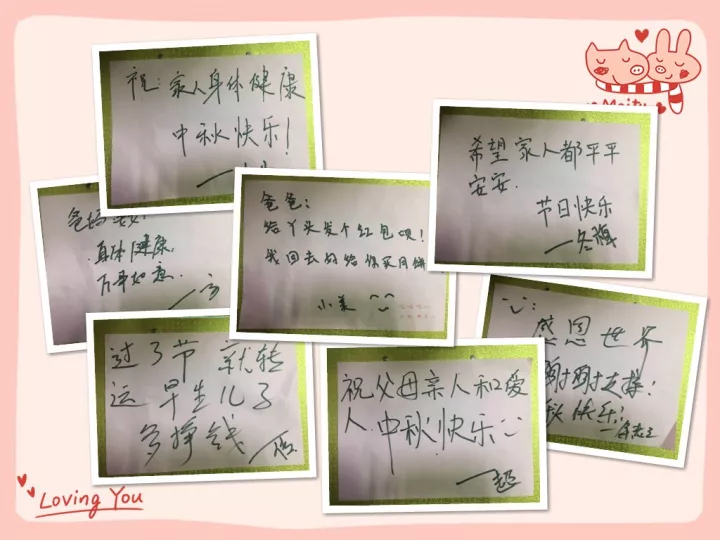 祝:家人身体健康
中秋快乐!
希望家人都平平
安安.
节日快乐
一冬梅
爸妈
身体健康
万事如意.
爸爸:
给丫头发个红包呗!
我回去的给你买月饼
小美
过了节就转
运早生儿子
多挣钱
祝父母亲人和爱
人.中秋快乐
一超
感恩世界
谢谢支撑!
秋快乐!
Loving You